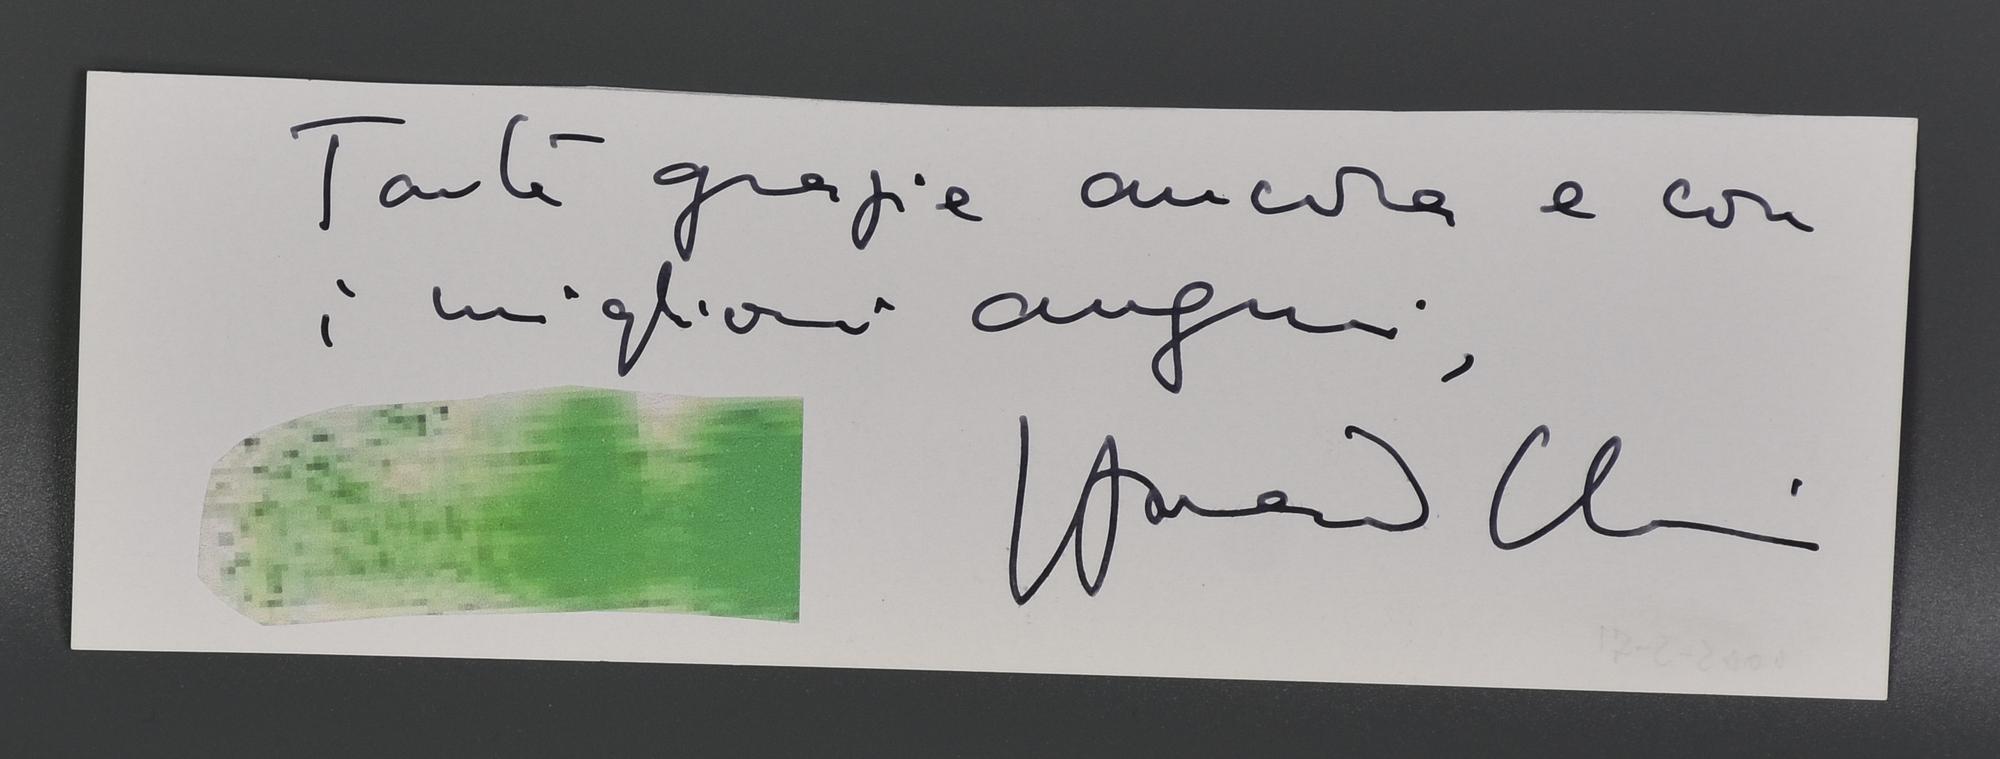 Tante grazie ancora e con
i migliori auguri,